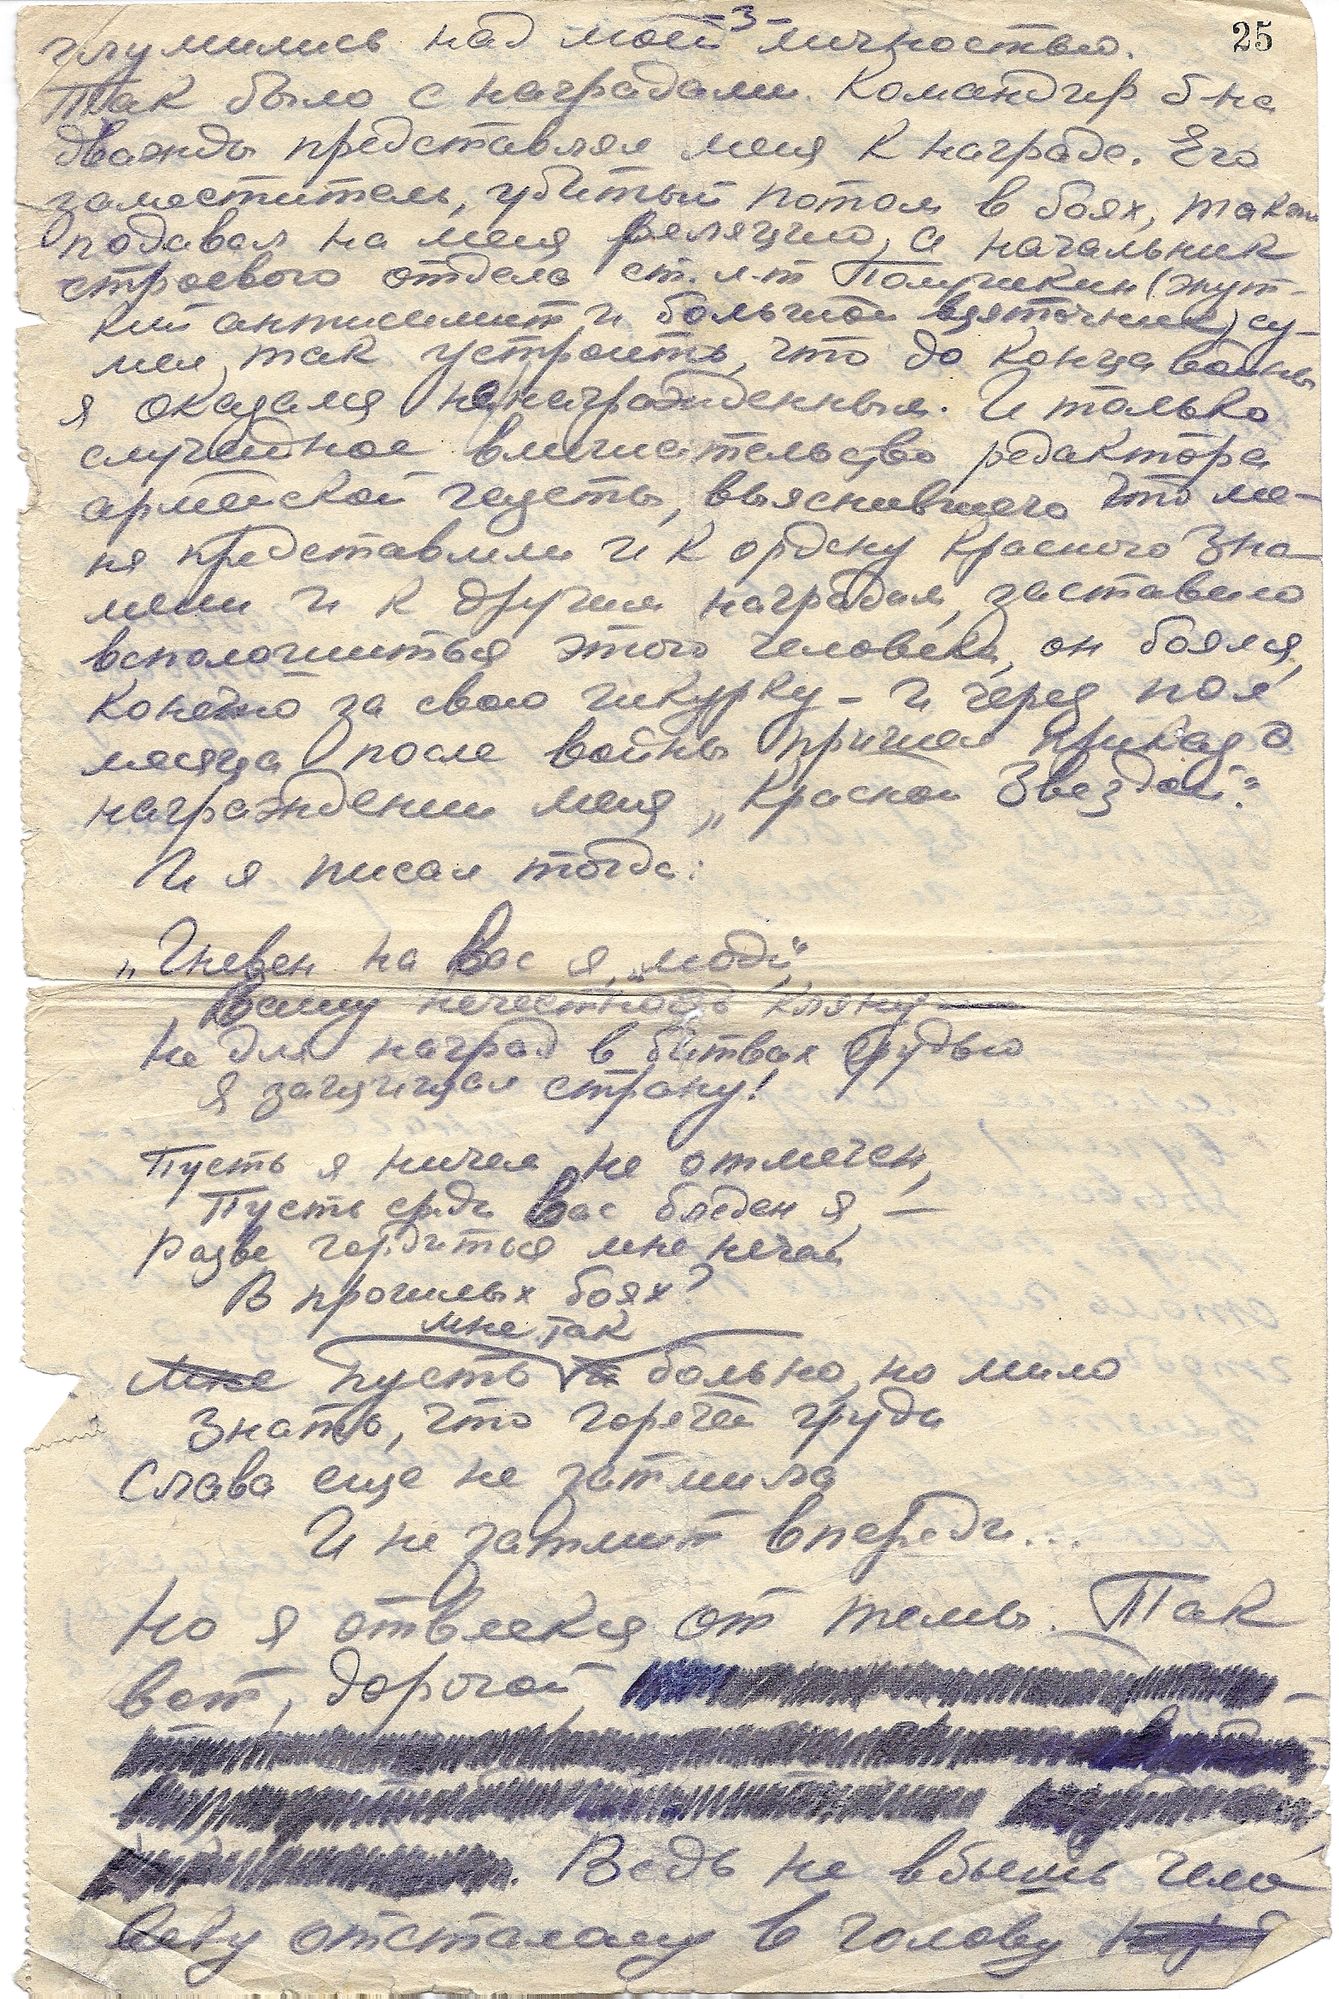 -3-
25
глумились над моей личностью.
Так было с наградами. Командир б-на
дважды представлял меня к награде. Его
заместитель, убитый потом в боях, также
подавал на меня реляцию, а начальник
строевого отдела ст. л-т Полушкин (жут-
кий антисемит и большой взяточник) су-
мел так устроить, что до конца войны
я оказался ненагражденным. И только
случайное вмешательство редактора
армейской газеты, выяснившего что ме-
ня представили и к ордену Красного Зна-
мени и к другим наградам, заставило
всполошиться этого человека, он боялся,
конечно за свою шкурку - и через пол
месяца после войны пришел приказ о
награждении меня „Красной Звездой".
И я писал тогда:
„Гневен на вас я, „люди",
Вашу нечестность кляну —
Не для наград в битвах грудью
Я защищал страну!
Пусть я ничем не отмечен,
Пусть средь вас бледен я, —
Разве гордиться мне нечем
В прошлых боях?
мне так
Мне пусть и больно, но мило
Знать, что горячей груди
Слава еще не затмила
И не затмит впереди...
Но я отвлекся от темы. Так
вот, дорогой
. Ведь не вбешь чело
веку отсталому в голову